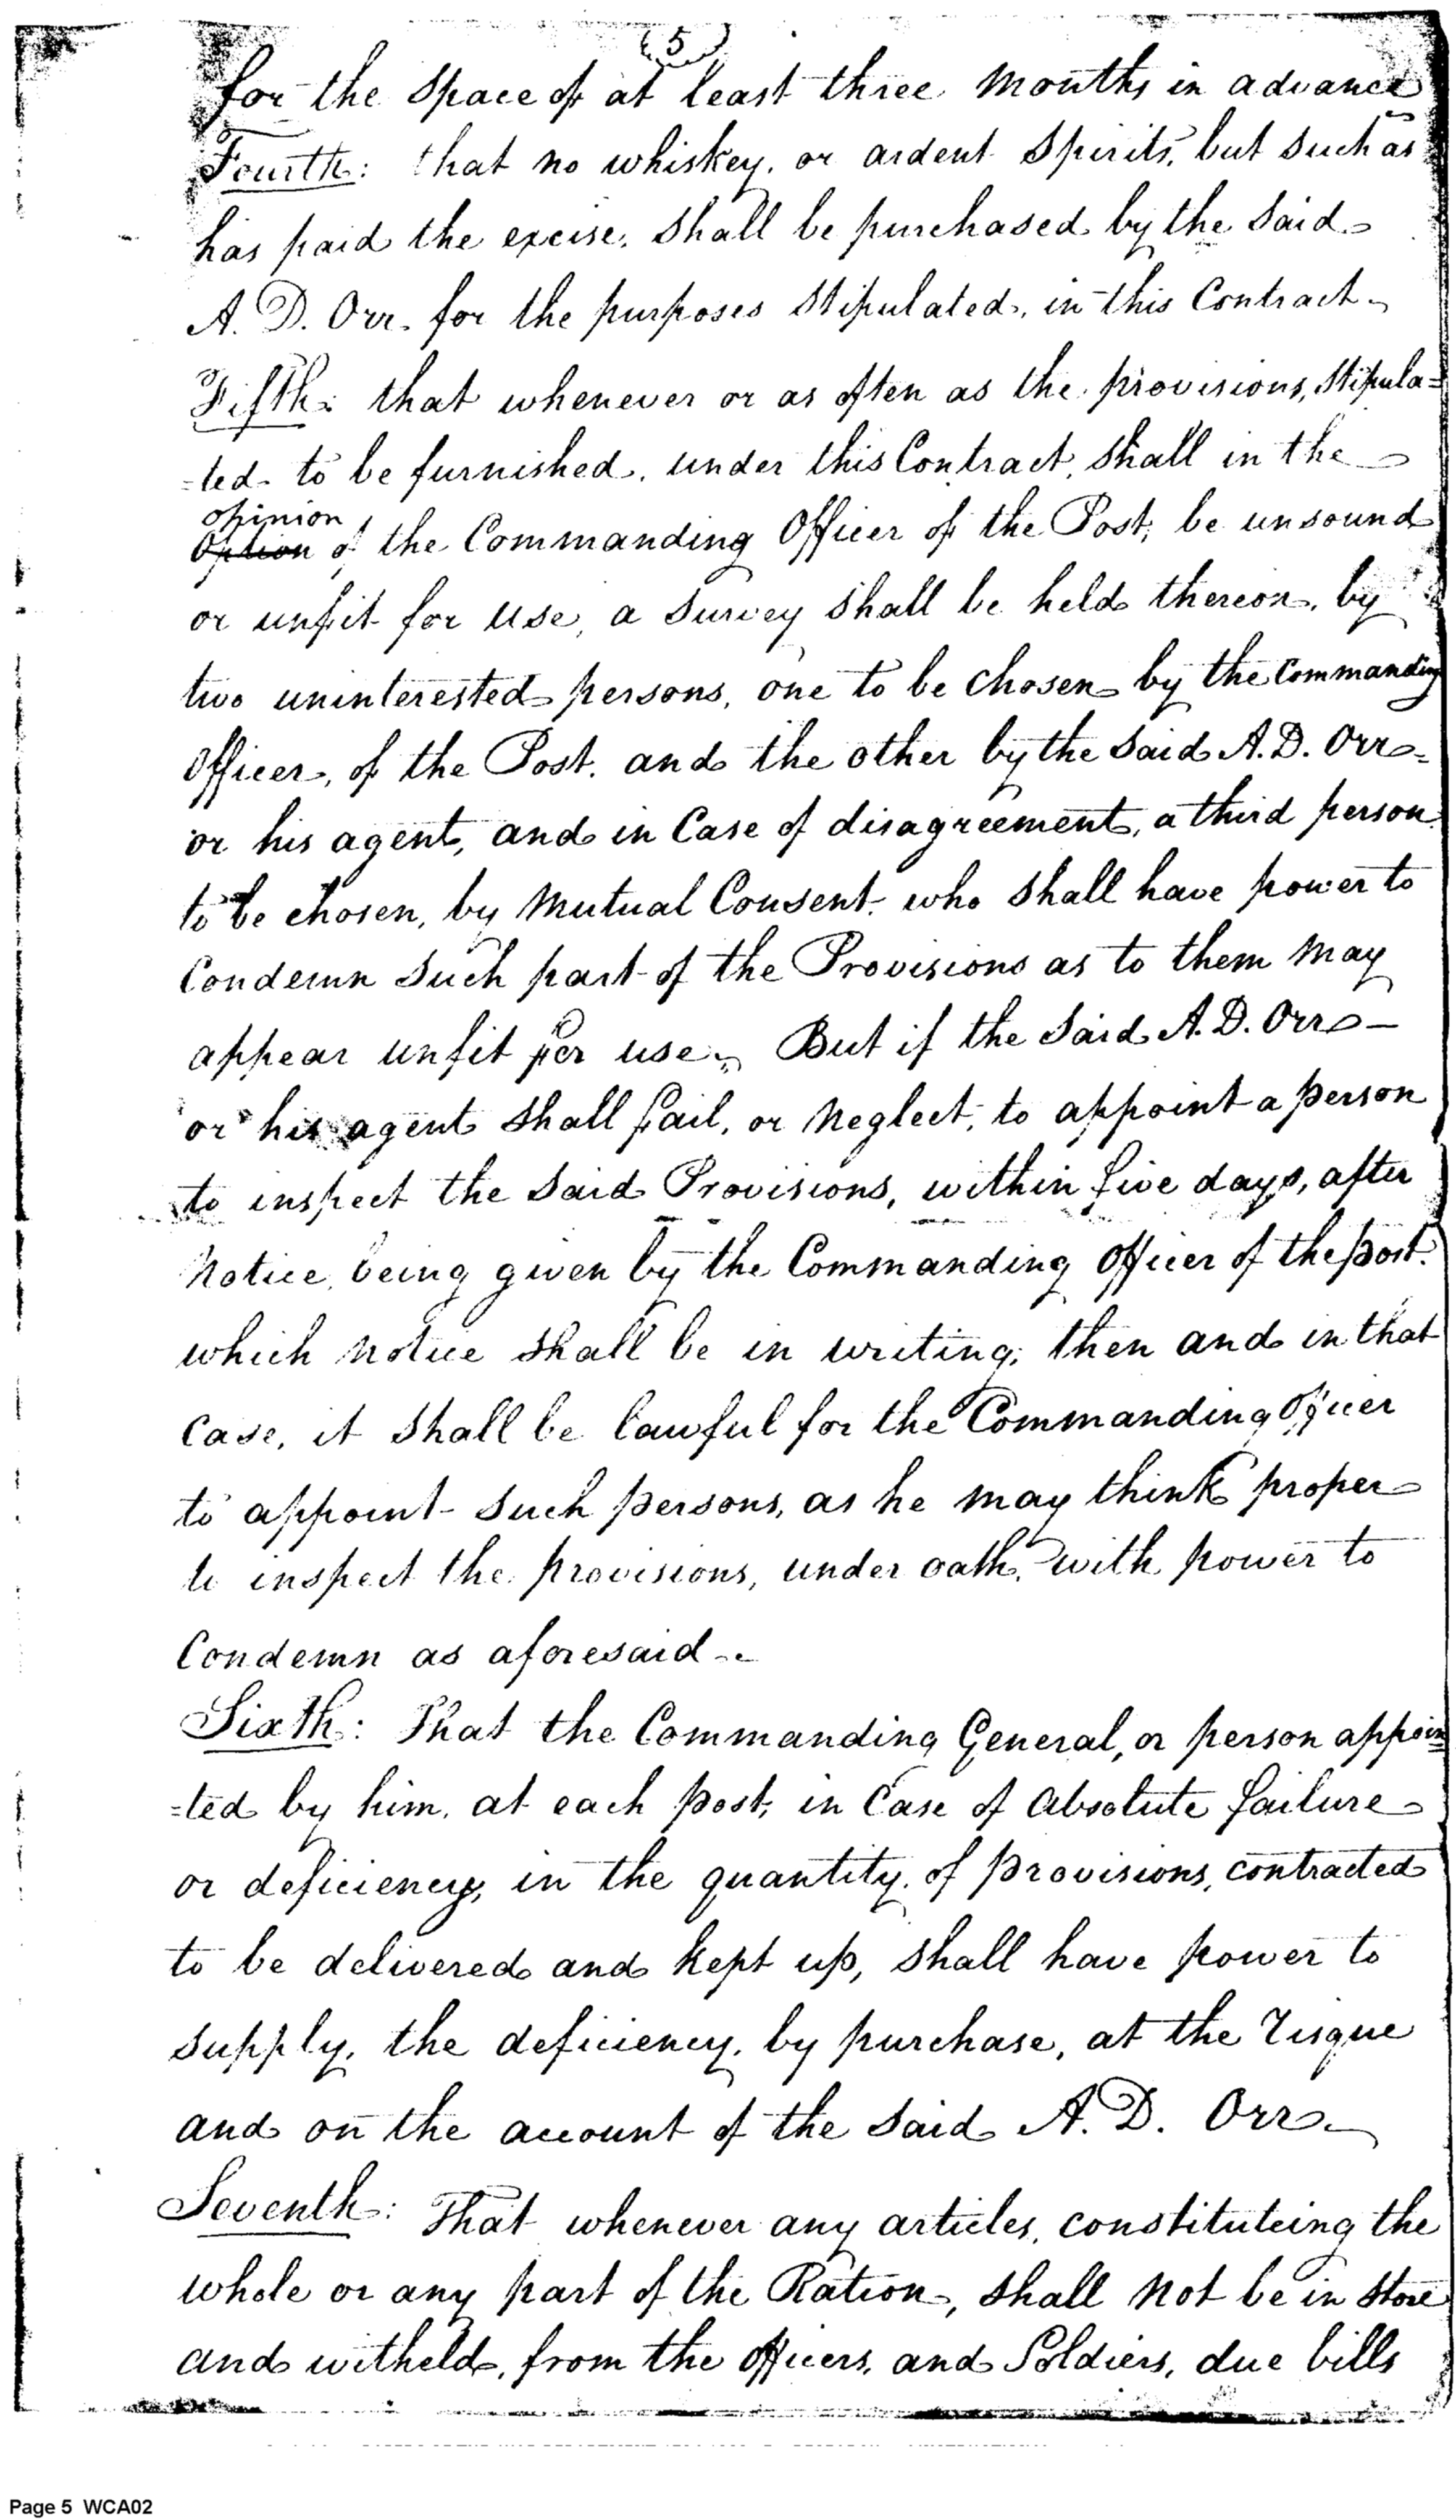 (5)
for the space of at least three months in advance
Fourth: that no whiskey, or ardent Spirits, but such as
has paid the excise, shall be purchased by the said
A. D. Orr for the purposes stipulated, in this Contract.
Fifth: that whenever or as often as the provisions, stipula=
=ted to be furnished, under this Contract, shall in the
opinion
Option of the Commanding Officer of the Post, be unsound
or unfit for use, a survey shall be held thereon, by
two uninterested persons, one to be chosen by the Commanding
Officer, of the Post, and the other by the said A. D. Orr
or his agent, and in Case of disagreement, a third person
to be chosen, by Mutual Consent, who shall have power to
Condemn such part of the Provisions as to them may
appear unfit for use. But if the said A. D. Orr
or his agent shall fail, or neglect, to appoint a person
to inspect the said Provisions, within five days, after
Notice, being given by the Commanding Officer of the post.
which Notice shall be in writing; then and in that
Case, it shall be lawful for the Commanding Officer
to appoint such persons, as he may think proper
to inspect the provisions, under oath, with power to
Condemn as aforesaid
Sixth: That the Commanding General, or person appoin
=ted by him, at each post, in Case of absolute failure
or deficiency, in the quantity, of provisions, contracted
to be delivered and kept up, shall have power to
supply, the deficiency, by purchase, at the risque
and on the account of the said A. D. Orr.
Seventh: That whenever any articles, constituteing the
whole or any part of the Ration, shall not be in store
and witheld, from the officers, and Soldiers, due bills
Page 5 WCA02